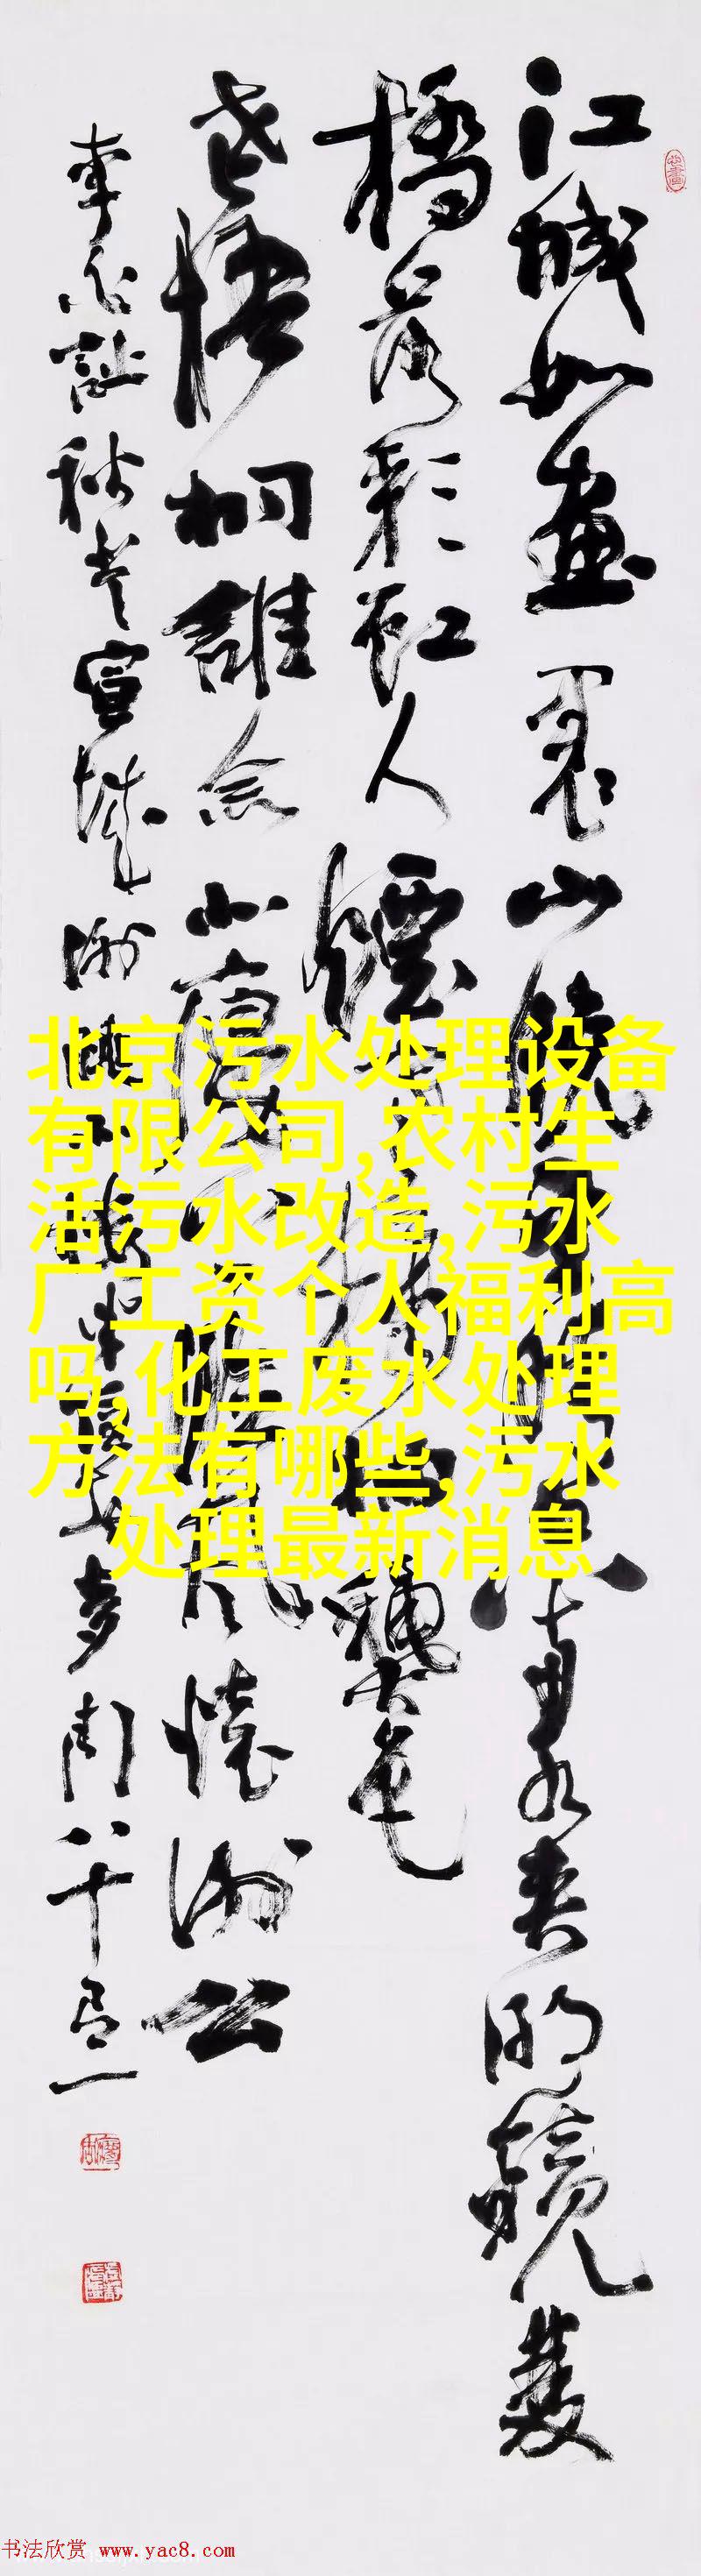 江城如画里山晓望晴空两水夹明镜双
桥落彩虹人烟寒橘柚秋色
老梧桐谁念北楼上临风怀谢公
李白诗秋登宣城谢朓北楼
八十
北京污水处理设备
有限公司,农村生
活污水改造,污水
厂工资个人福利高
吗,化工废水处理
方法有哪些,污水
处理最新消息
书法欣赏 www.yac8.com